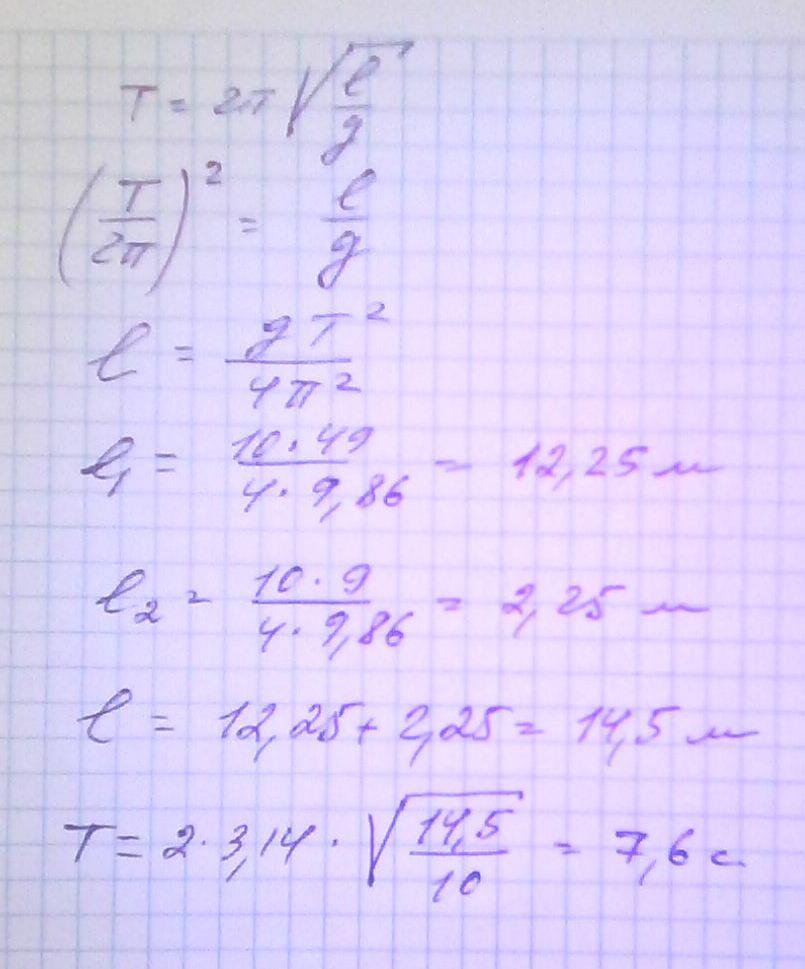 T = 2π √(l/g)
(T/2π)² = l/g
l = gT²/4π²
l₁ = 10·49/4·9,86 = 12,25 м
l₂ = 10·9/4·9,86 = 2,25 м
l = 12,25 + 2,25 = 14,5 м
T = 2·3,14·√(14,5/10) = 7,6 с.